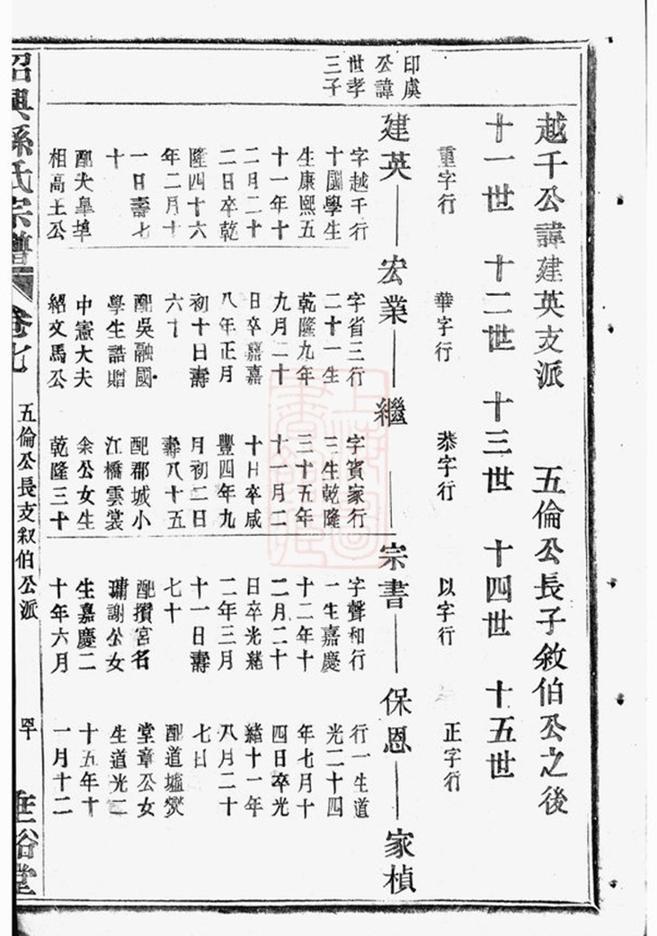 越千公諱建英支派　五倫公長子敘伯公之後
十一世　十二世　十三世　十四世　十五世
重字行　華字行　恭字行　以字行　正字行
印虞
公諱
世孝
三子
建英——宏業——繼——宗書——保恩——家楨
字越千行
十國學生
生康熙五
十一年十
二月二十
二日卒乾
隆四十六
年二月十
一日壽七
十
配犬皐埠
相高王公
字省三行
二十一生
乾隆九年
九月二十
日卒嘉慶
八年正月
初十日壽
六十
配吳融國
學生誥贈
中憲大夫
紹文馬公
字賓家行
三生乾隆
三十五年
十一月二
十日卒咸
豐四年九
月初二日
壽八十五
配郡城小
江橋雲裳
余公女生
乾隆三十
字聲和行
一生嘉慶
十二年十
二月二十
日卒光緒
二年三月
十一日壽
七十
配攢宮名
謝公女
生嘉慶二
十年六月
行一生道
光二十四
年七月十
四日卒光
緒十一年
八月二十
七日
配道墟燮
堂章公女
生道光二
十五年十
一月十二
紹興孫氏宗譜　卷七　五倫公長支叙伯公派　垂裕堂